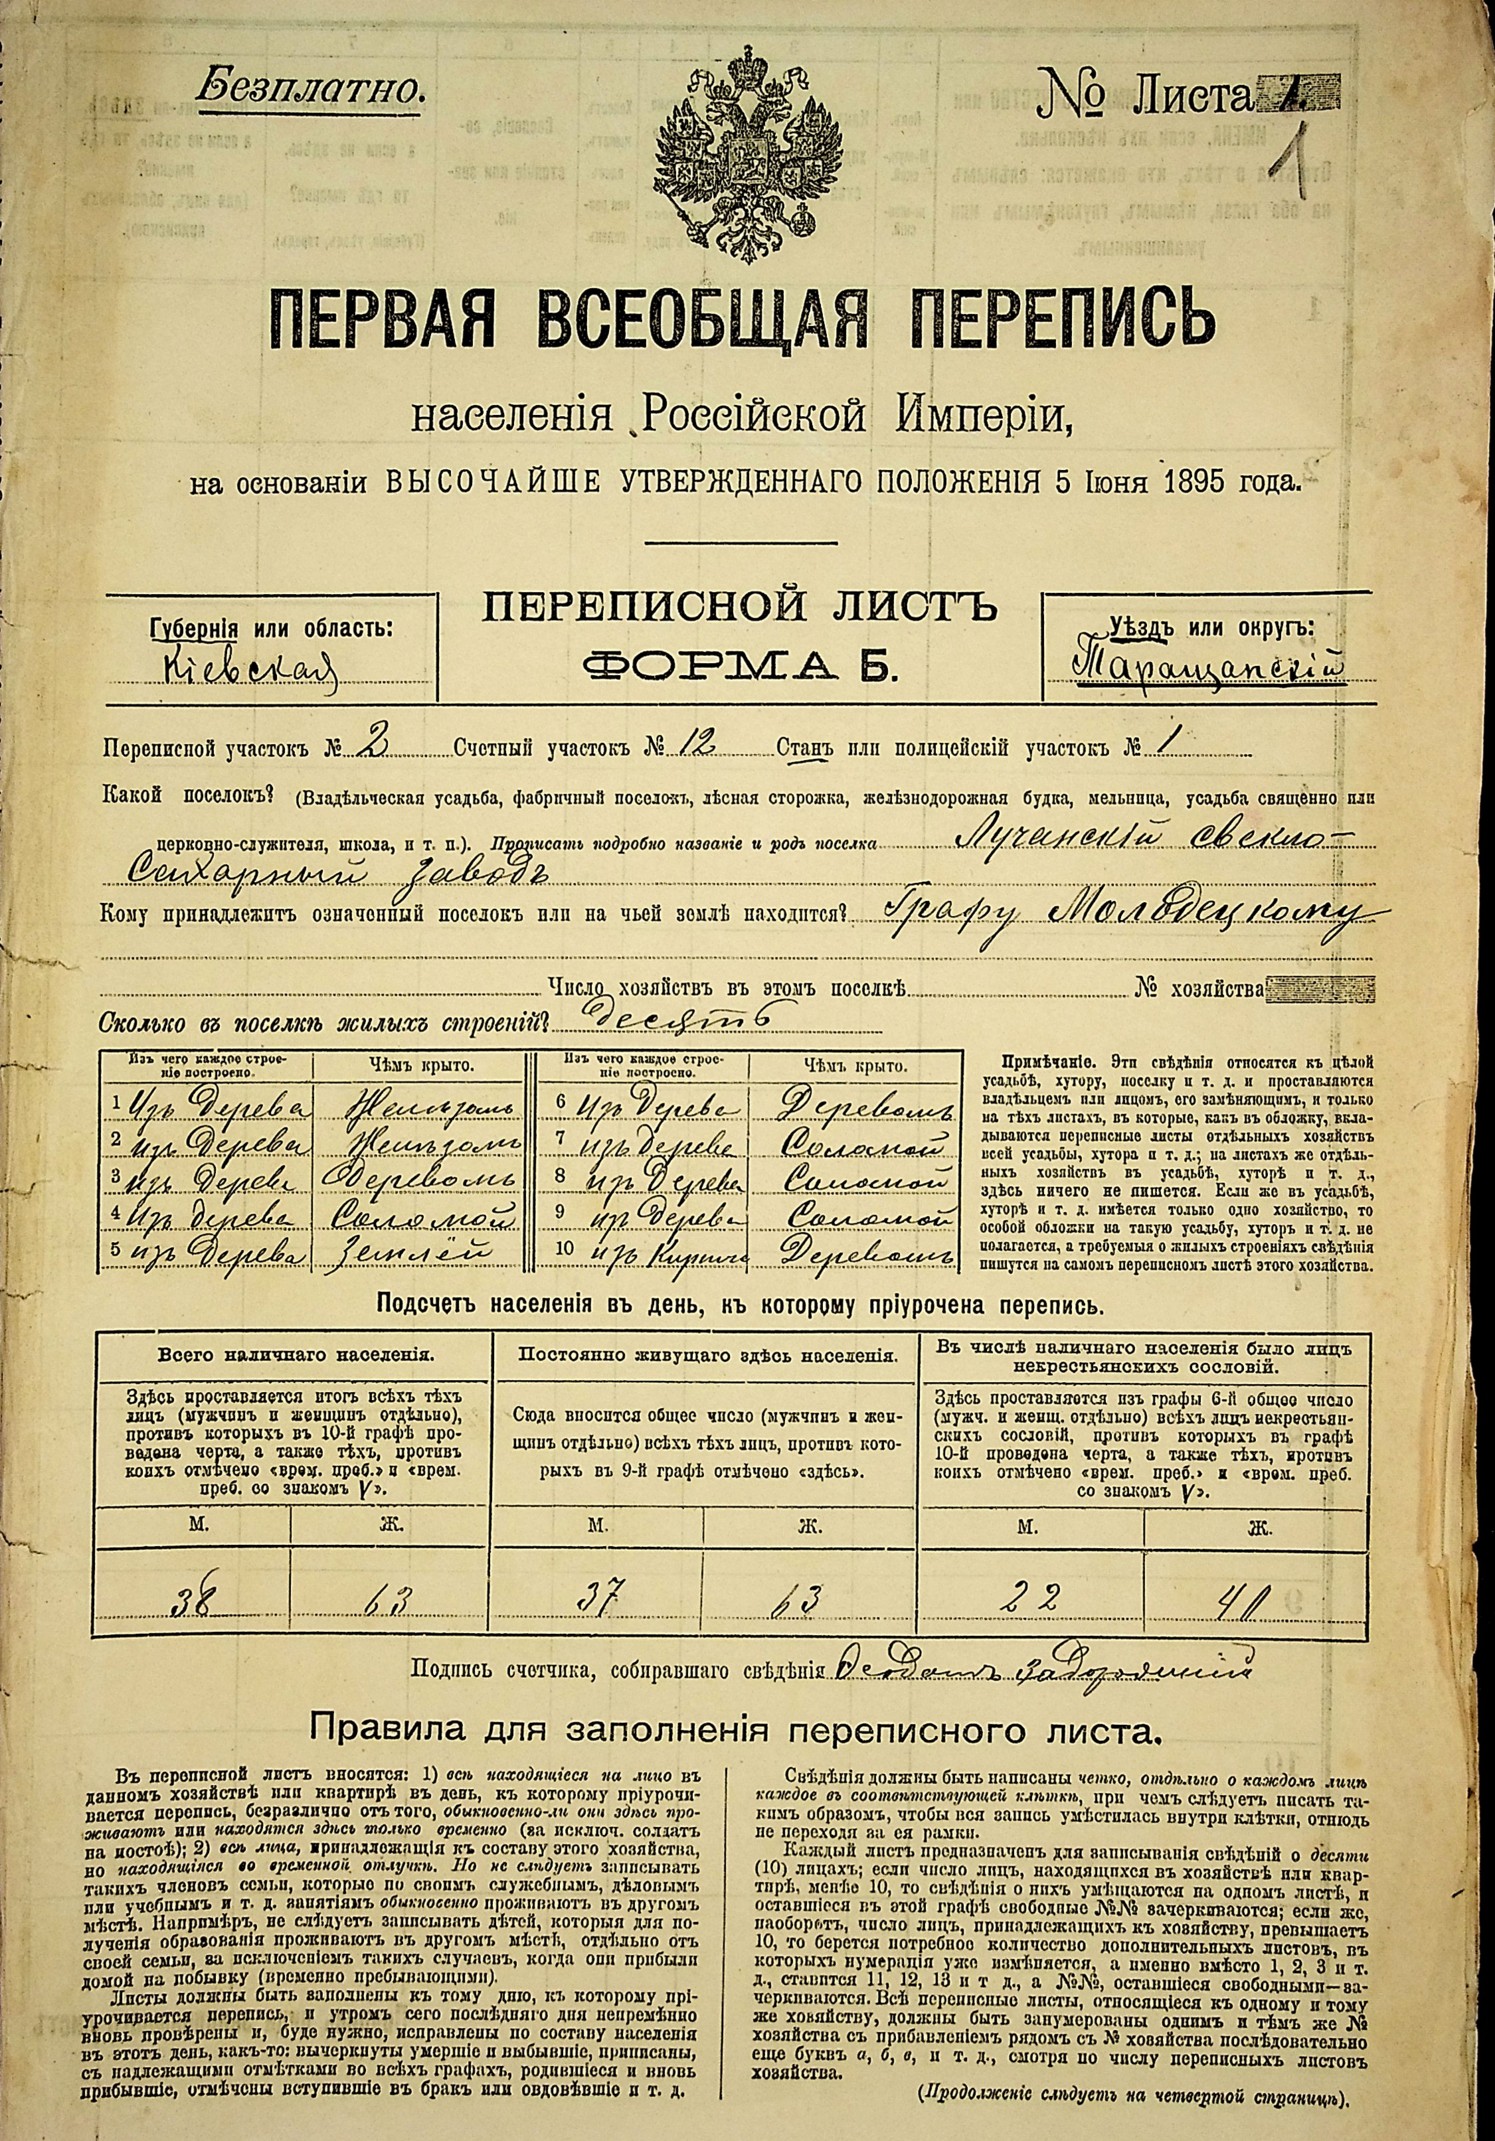 Безплатно.
№ Листа 1.
1
ПЕРВАЯ ВСЕОБЩАЯ ПЕРЕПИСЬ
населенія Россійской Имперіи,
на основаніи ВЫСОЧАЙШЕ УТВЕРЖДЕННАГО ПОЛОЖЕНІЯ 5 Іюня 1895 года.
ПЕРЕПИСНОЙ ЛИСТЪ
ФОРМА Б.
Губернія или область:
Кіевская
Уѣздъ или округъ:
Таращанскій
Переписной участокъ № 2 Счетный участокъ № 12 Станъ или полицейскій участокъ № 1
Какой поселокъ? (Владѣльческая усадьба, фабричный поселокъ, лѣсная сторожка, желѣзнодорожная будка, мельница, усадьба священно или
церковно-служителя, школа, и т. п.). Прописать подробно названіе и родъ поселка Лучанскій свекло-
Сахарный заводъ
Кому принадлежитъ означенный поселокъ или на чьей землѣ находится? Графу Молодецкому
Число хозяйствъ въ этомъ поселкѣ № хозяйства
Сколько въ поселкѣ жилыхъ строеній? Десять
Изъ чего каждое строе-
ніе построено. Чѣмъ крыто.
Изъ чего каждое строе-
ніе построено. Чѣмъ крыто.
1 Изъ Дерева Желѣзомъ 6 Изъ Дерева Деревомъ
2 изъ Дерева Желѣзомъ 7 изъ Дерева Соломой
3 изъ Дерева Деревомъ 8 изъ Дерева Соломой
4 Изъ Дерева Соломой 9 изъ Дерева Соломой
5 изъ Дерева Землёй 10 изъ Кирпича Деревомъ
Примѣчаніе. Эти свѣдѣнія относятся къ цѣлой
усадьбѣ, хутору, поселку и т. д. и проставляются
владѣльцемъ или лицомъ, его замѣняющимъ, и только
на тѣхъ листахъ, въ которые, какъ въ обложку, вкла-
дываются переписные листы отдѣльныхъ хозяйствъ
всей усадьбы, хутора и т. д.; на листахъ же отдѣль-
ныхъ хозяйствъ въ усадьбѣ, хуторѣ и т. д.,
здѣсь ничего не пишется. Если же въ усадьбѣ,
хуторѣ и т. д. имѣется только одно хозяйство, то
особой обложки на такую усадьбу, хуторъ и т. д. не
полагается, а требуемыя о жилыхъ строеніяхъ свѣдѣнія
пишутся на самомъ переписномъ листѣ этого хозяйства.
Подсчетъ населенія въ день, къ которому пріурочена перепись.
Всего наличнаго населенія.
Здѣсь проставляется итогъ всѣхъ тѣхъ
лицъ (мужчинъ и женщинъ отдѣльно),
противъ которыхъ въ 10-й графѣ про-
ведена черта, а также тѣхъ, противъ
коихъ отмѣчено «врем. преб.» и «врем.
преб. со знакомъ V».
Постоянно живущаго здѣсь населенія.
Сюда вносится общее число (мужчинъ и жен-
щинъ отдѣльно) всѣхъ тѣхъ лицъ, противъ кото-
рыхъ въ 9-й графѣ отмѣчено «здѣсь».
Въ числѣ наличнаго населенія было лицъ
некрестьянскихъ сословій.
Здѣсь проставляется изъ графы 6-й общее число
(мужч. и женщ. отдѣльно) всѣхъ лицъ некрестьян-
скихъ сословій, противъ которыхъ въ графѣ
10-й проведена черта, а также тѣхъ, противъ
коихъ отмѣчено «врем. преб.» и «врем. преб.
со знакомъ V».
М. Ж. М. Ж. М. Ж.
38 63 37 63 22 40
Подпись счетчика, собиравшаго свѣдѣнія
Правила для заполненія переписного листа.
Въ переписной листъ вносятся: 1) всѣ находящіеся на лицо въ
данномъ хозяйствѣ или квартирѣ въ день, къ которому пріурочи-
вается перепись, безразлично отъ того, обыкновенно-ли они здѣсь про-
живаютъ или находятся здѣсь только временно (за исключ. солдатъ
на постоѣ); 2) всѣ лица, принадлежащія къ составу этого хозяйства,
но находящіяся во временной отлучкѣ. Но не слѣдуетъ записывать
такихъ членовъ семьи, которые по своимъ служебнымъ, дѣловымъ
или учебнымъ и т. д. занятіямъ обыкновенно проживаютъ въ другомъ
мѣстѣ. Напримѣръ, не слѣдуетъ записывать дѣтей, которыя для по-
лученія образованія проживаютъ въ другомъ мѣстѣ, отдѣльно отъ
своей семьи, за исключеніемъ такихъ случаевъ, когда они прибыли
домой на побывку (временно пребывающими).
Листы должны быть заполнены къ тому дню, къ которому прі-
урочивается перепись, и утромъ сего послѣдняго дня непремѣнно
вновь провѣрены и, буде нужно, исправлены по составу населенія
въ этотъ день, какъ-то: вычеркнуты умершіе и выбывшіе, приписаны,
съ надлежащими отмѣтками во всѣхъ графахъ, родившіеся и вновь
прибывшіе, отмѣчены вступившіе въ бракъ или овдовѣвшіе и т. д.
Свѣдѣнія должны быть написаны четко, отдѣльно о каждомъ лицѣ
каждое въ соотвѣтствующей клѣткѣ, при чемъ слѣдуетъ писать та-
кимъ образомъ, чтобы вся запись умѣстилась внутри клѣтки, отнюдь
не переходя за ея рамки.
Каждый листъ предназначенъ для записыванія свѣдѣній о десяти
(10) лицахъ; если число лицъ, находящихся въ хозяйствѣ или квар-
тирѣ, менѣе 10, то свѣдѣнія о нихъ умѣщаются на одномъ листѣ, и
оставшіеся въ этой графѣ свободные №№ зачеркиваются; если же,
наоборотъ, число лицъ, принадлежащихъ къ хозяйству, превышаетъ
10, то берется потребное количество дополнительныхъ листовъ, въ
которыхъ нумерація уже измѣняется, а именно вмѣсто 1, 2, 3 и т.
д., ставится 11, 12, 13 и т д., а №№, оставшіеся свободными—за-
черкиваются. Всѣ переписные листы, относящіеся къ одному и тому
же хозяйству, должны быть занумерованы однимъ и тѣмъ же №
хозяйства съ прибавленіемъ рядомъ съ № хозяйства послѣдовательно
еще буквъ а, б, в, и т. д., смотря по числу переписныхъ листовъ
хозяйства.
(Продолженіе слѣдуетъ на четвертой страницѣ).